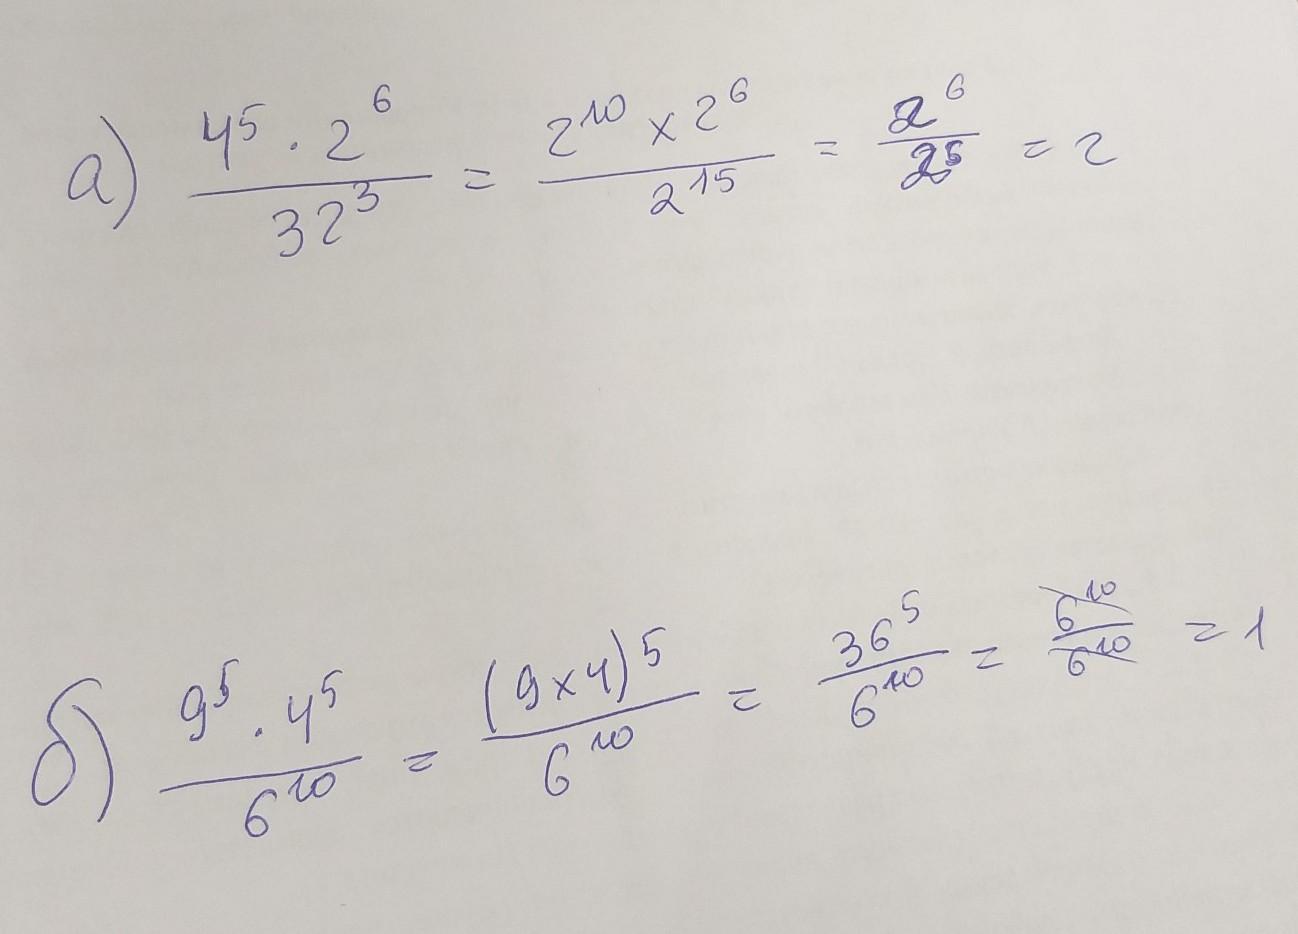 а) 4⁵ · 2⁶ / 32³ = 2¹⁰ × 2⁶ / 2¹⁵ = 2⁶ / 2⁵ = 2
б) 9⁵ · 4⁵ / 6¹⁰ = (9×4)⁵ / 6¹⁰ = 36⁵ / 6¹⁰ = 6¹⁰ / 6¹⁰ = 1